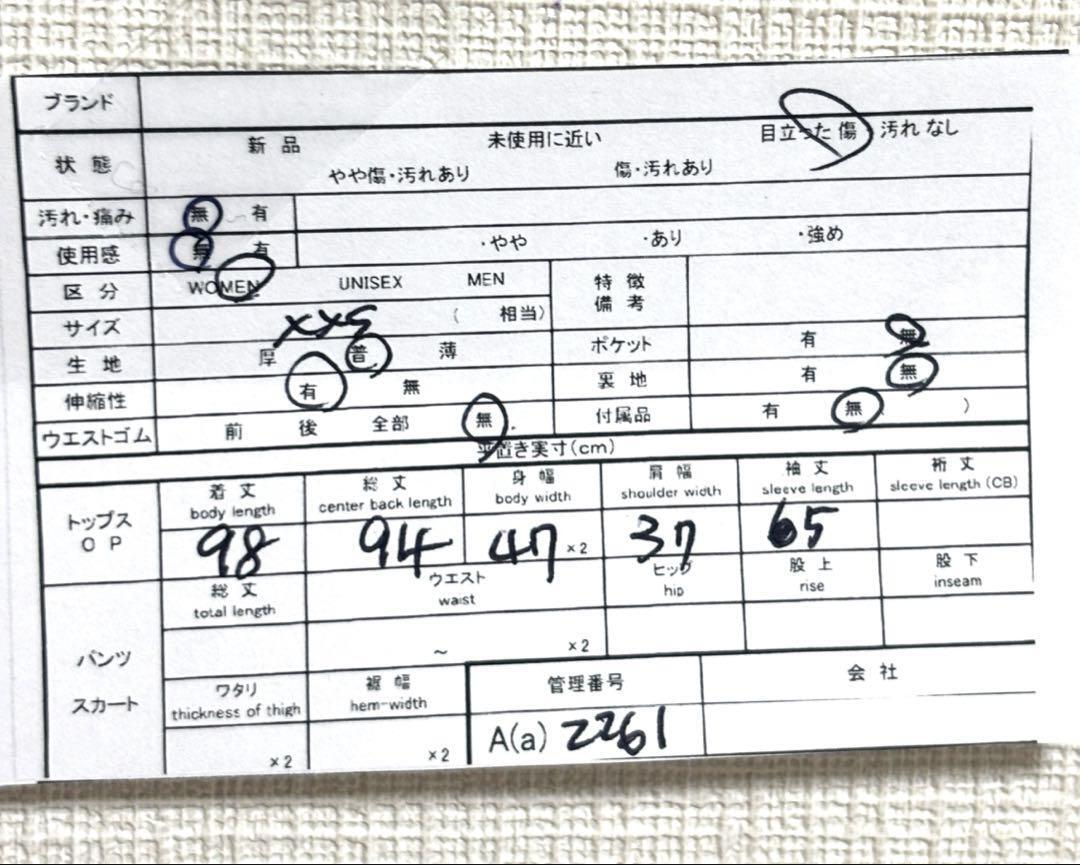 ブランド
状態 新品 未使用に近い 目立った傷・汚れなし
やや傷・汚れあり 傷・汚れあり
汚れ・痛み 無 ~ 有
使用感 無 有 ・やや ・あり ・強め
区分 WOMEN UNISEX MEN 特徴
備考
サイズ XXS ( 相当)
生地 厚 普 薄 ポケット 有 無
伸縮性 有 無 裏地 有 無
ウエストゴム 前 後 全部 無 付属品 有 無 )
平置き実寸(cm)
トップス
OP
着丈 総丈 身幅 肩幅 袖丈 裄丈
body length center back length body width shoulder width sleeve length sleeve length (CB)
98 94 47 ×2 37 65
パンツ
スカート
総丈 ウエスト ヒップ 股上 股下
total length waist hip rise inseam
~ ×2
ワタリ 裾幅 管理番号 会社
thickness of thigh hem-width
×2 ×2 A(a) 2261